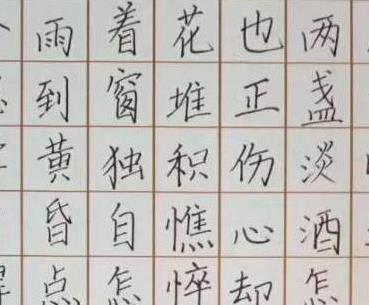 两盏淡酒怎
也正伤心却
花堆积憔悴
着窗独自怎
雨到黄昏点